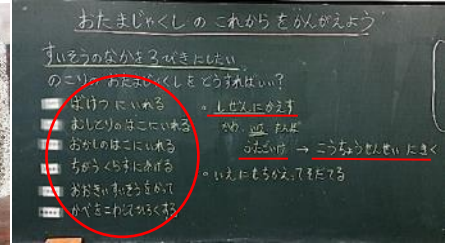 おたまじゃくしのこれからをかんがえよう
すいそうのなかを3びきにしたい
のこりのおたまじゃくしをどうすればいい?
ばけつにいれる
むしとりのはこにいれる
おかしのはこにいれる
ちがうくらすにあげる
おおきいすいそうをかって
かべをこわしてひろくする
・しぜんにかえす
かわ、池 たんぼ
→ こうちょうせんせいにきく
・いえにもちかえってそだてる